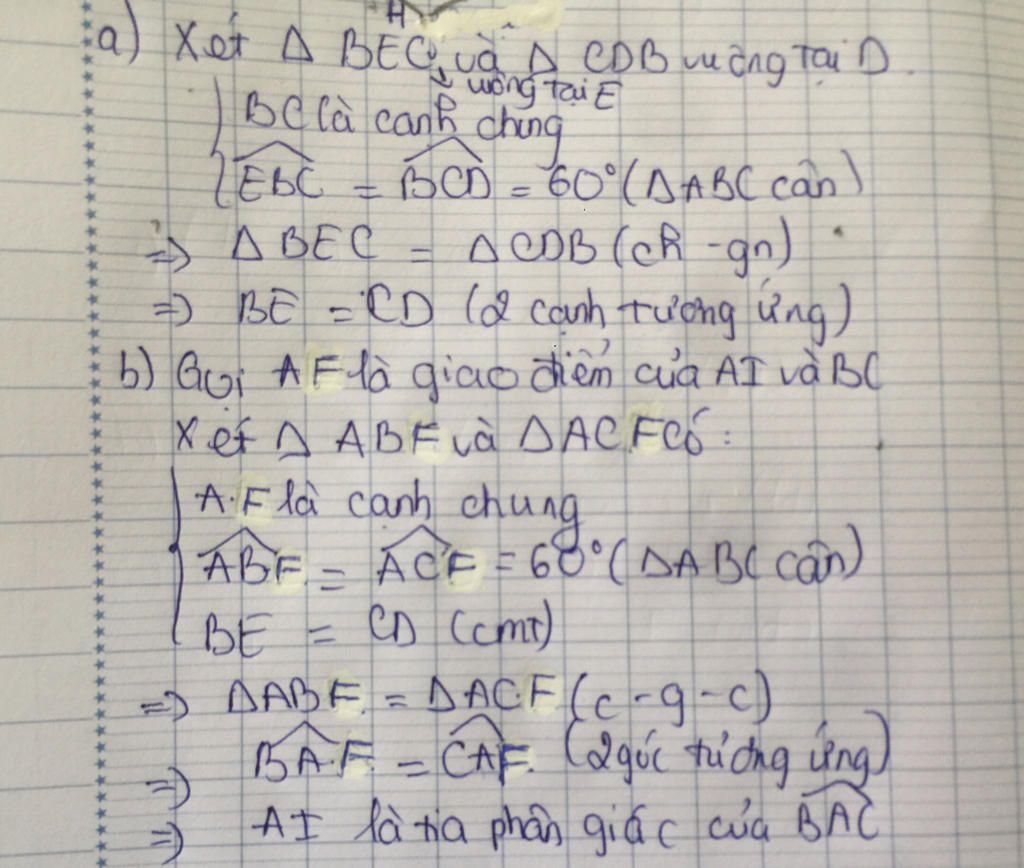 H
a) Xét Δ BEC và Δ CDB vuông tại D.
vuông tại E
BC là cạnh chung
EBC = BCD = 60° (ΔABC cân)
=> ΔBEC = ΔCDB (ch - gn)
=> BE = CD (2 cạnh tương ứng)
b) Gọi AF là giao điểm của AI và BC
Xét Δ ABF và ΔACF có :
AF là cạnh chung
ABF = ACF = 60° (ΔABC cân)
BE = CD (cmt)
=> ΔABF = ΔACF (c - g - c)
=> BAF = CAF (2 góc tương ứng)
=> AI là tia phân giác của BAC